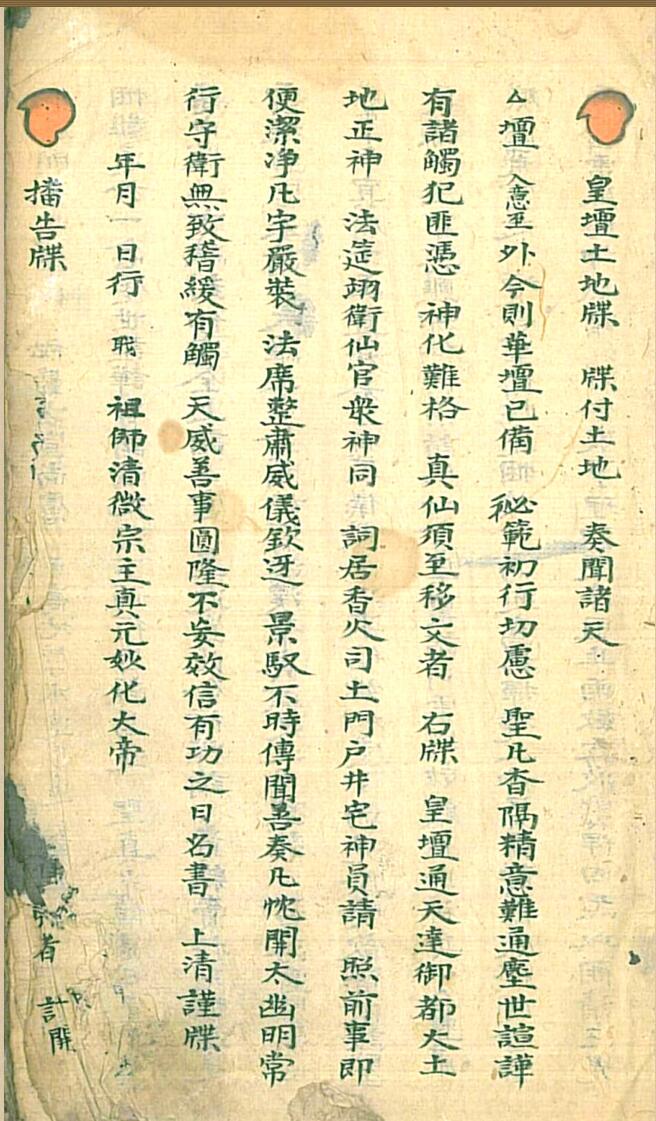 皇壇土地牒　牒付土地　奏聞諸天
厶壇入意至外今則華壇已備　秘範初行切慮　聖凡杳隔精意難通塵世諠譁
有諸觸犯匪憑　神化難格　真仙須至移文者　右牒　皇壇通天達御都大土
地正神　法筵翊衛仙官衆神同　詞居香火司土門户井宅神員請　照前事即
便潔净凡宇嚴裝　法席整肅威儀欽迓　景馭不時傳聞善奏凡忱開太幽明常
行守衛無致稽緩有觸　天威善事圓隆不妄效信有功之日名書　上清謹牒
年月一日行　職　祖師清微宗主真元妙化大帝
播告牒
者　計開